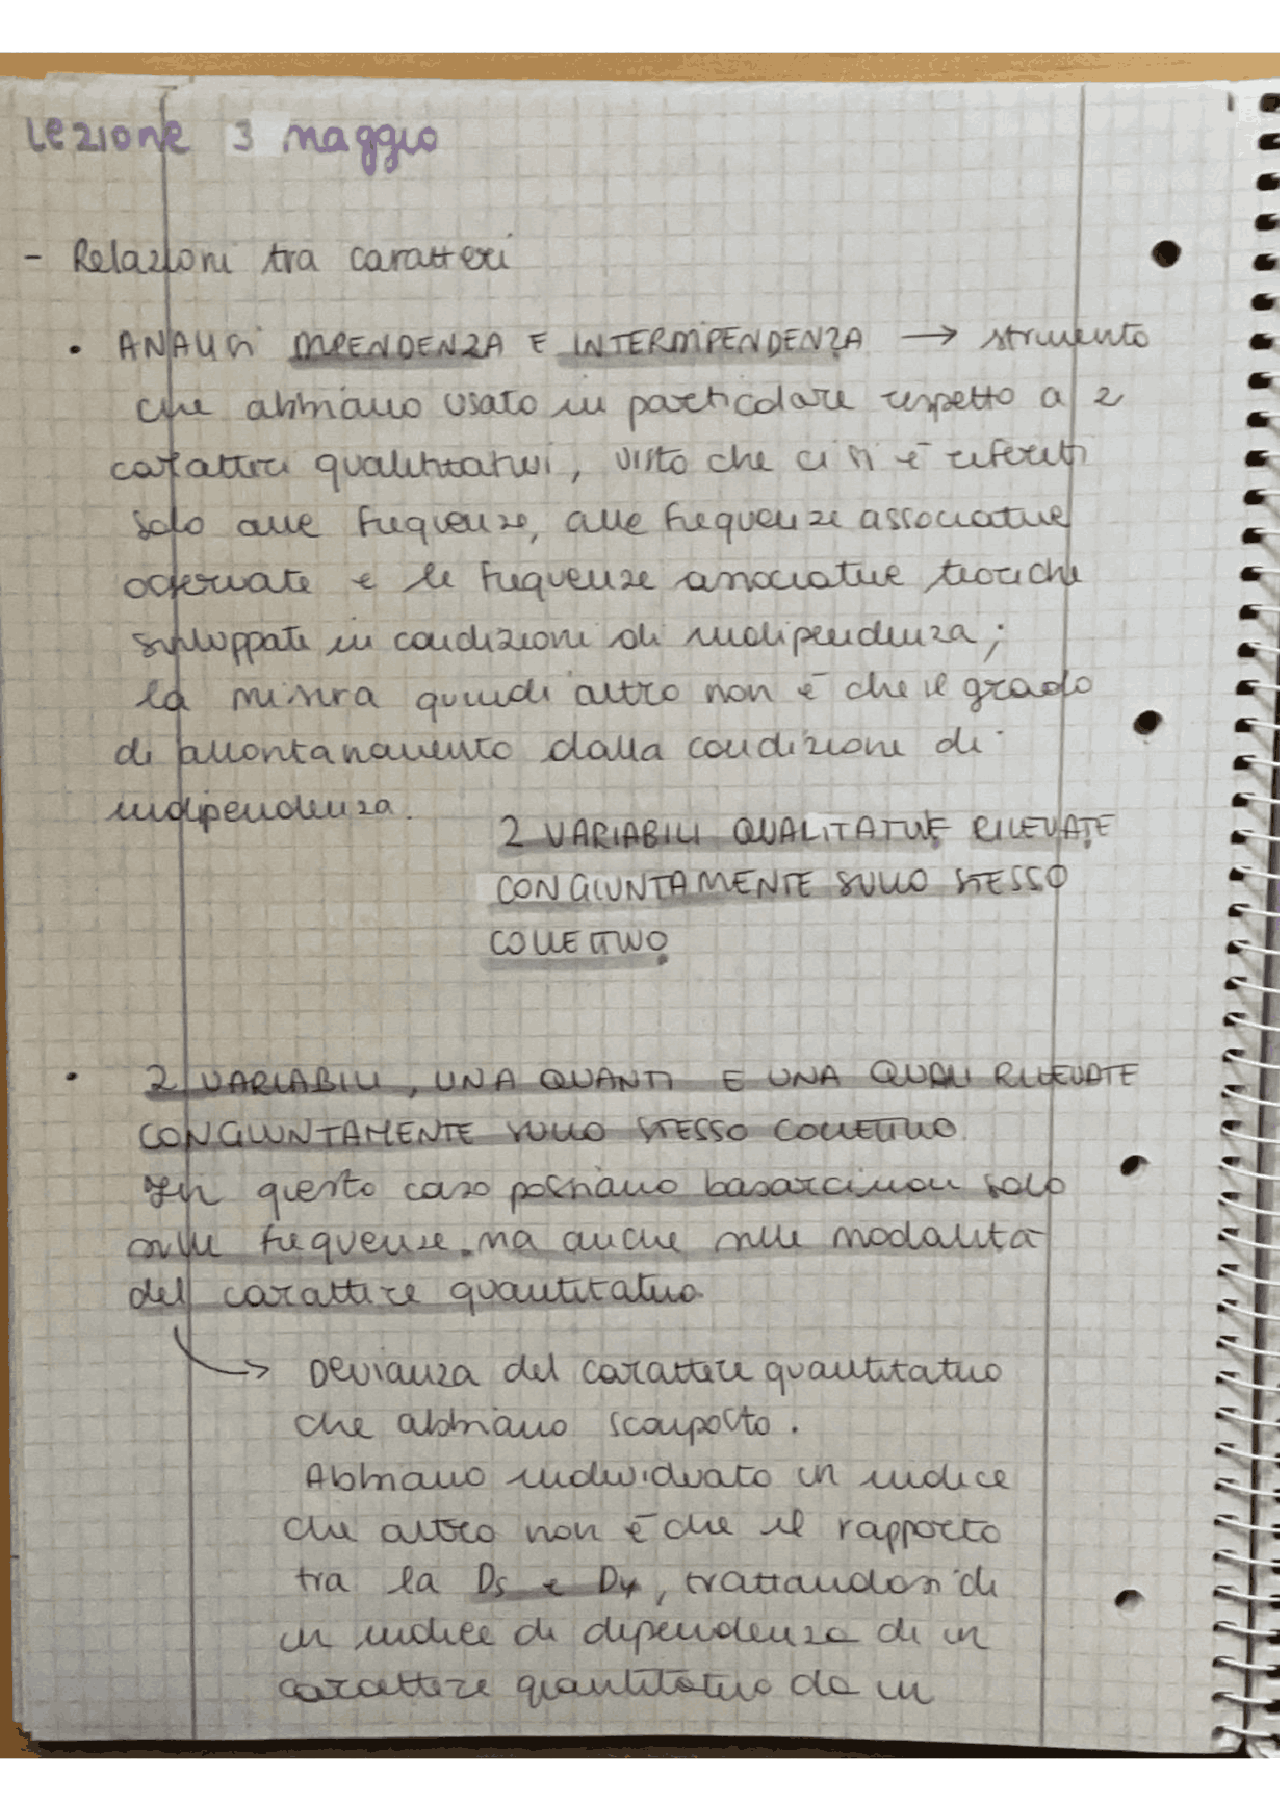 Lezione 3 maggio
- Relazioni tra caratteri
• ANALISI DIPENDENZA E INTERDIPENDENZA → strumento
che abbiamo usato in particolare rispetto a 2
caratteri qualitativi, visto che ci si è riferiti
solo alle frequenze, alle frequenze associative
osservate e le frequenze associative teoriche
sviluppate in condizioni di indipendenza;
la misura quindi altro non è che il grado
di allontanamento dalla condizione di
indipendenza.
2 VARIABILI QUALITATIVE RILEVATE
CONGIUNTAMENTE SULLO STESSO
COLLETTIVO
• 2 VARIABILI, UNA QUANTI E UNA QUALI RILEVATE
CONGIUNTAMENTE SULLO STESSO COLLETTIVO
In questo caso possiamo basarci non solo
sulle frequenze ma anche sulle modalità
del carattere quantitativo
→ Devianza del carattere quantitativo
che abbiamo scomposto.
Abbiamo individuato un indice
che altro non è che il rapporto
tra la Ds e Dy, trattandosi di
un indice di dipendenza di un
carattere quantitativo da un